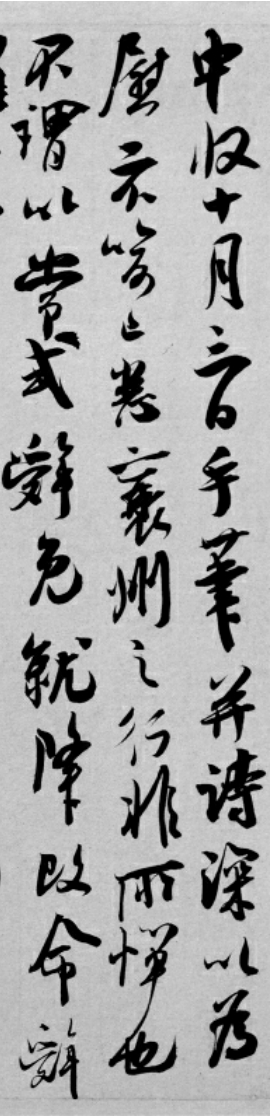 中收十月三日手筆并詩深以為
慰示喻已悉襄州之行非所憚也
不謂以貲式辭免就降改命辭